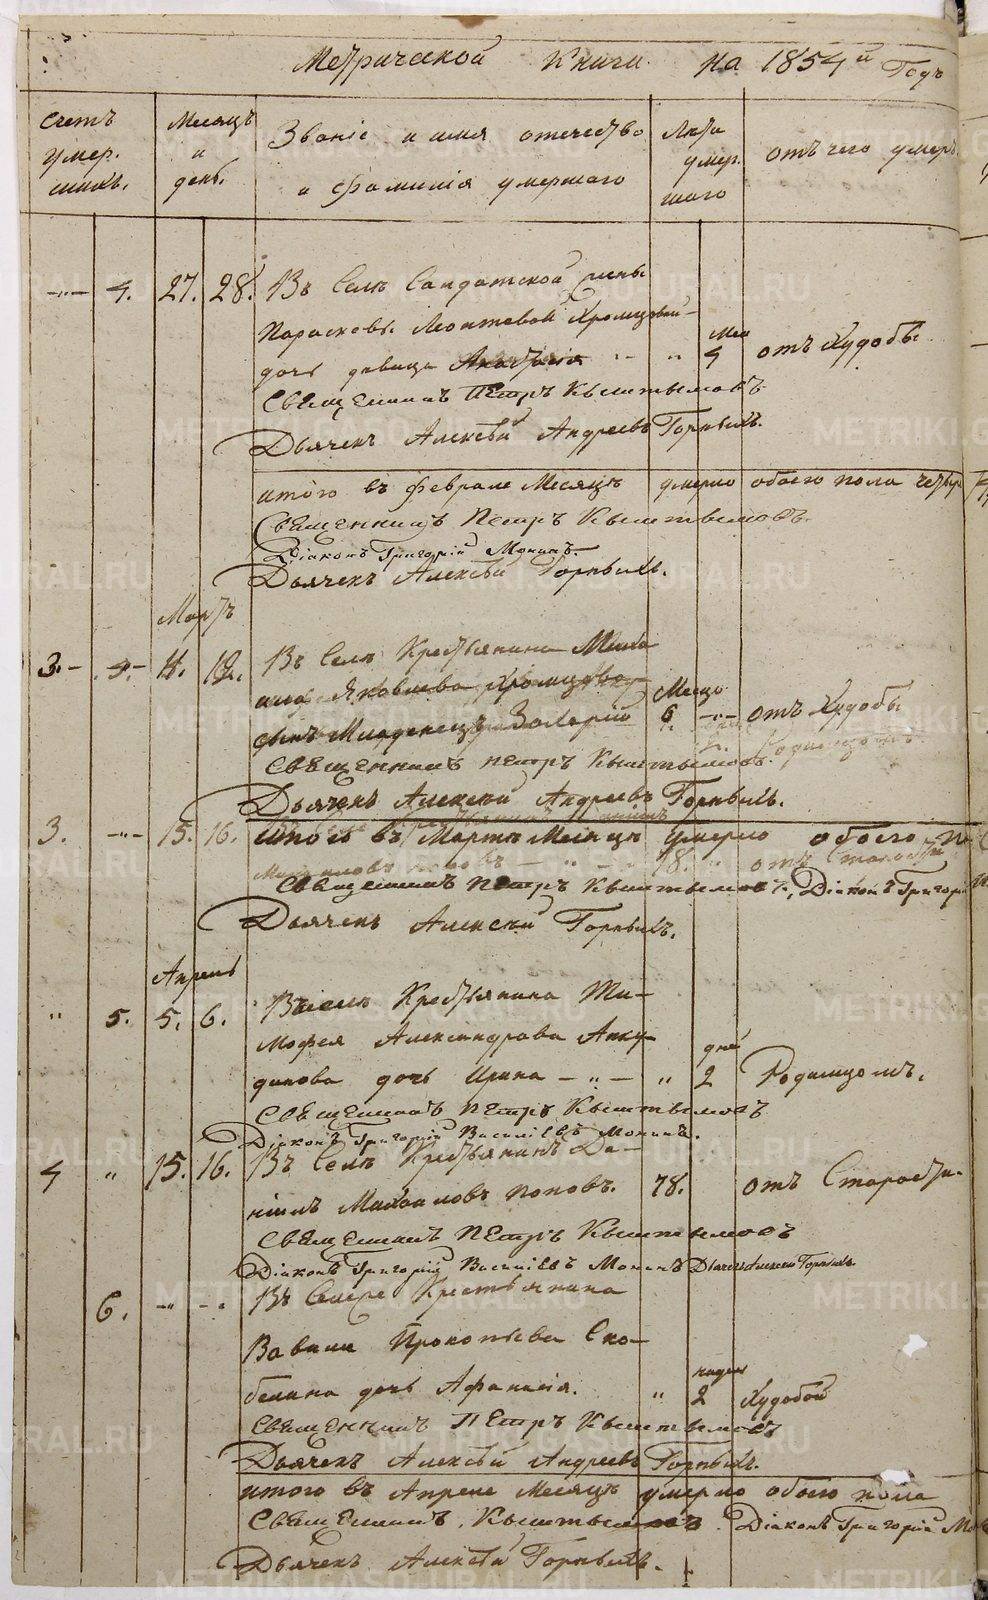 Метрической Книги на 1854й Годъ
Счетъ умер. шихъ.
Месяцъ и день.
Званіе и имя отечество
и фамилія умершаго
Лета умер. шаго
отъ чего умеръ.
4. 27. 28. Въ Селе Салдатской жены
Парасковьи Леонтьевой Хромцовой
дочь девица Мес 4 отъ Худобы
Священникъ Петръ Кыштымовъ
Дьячекъ Алексей Андреевъ Горныхъ.
итого въ феврале Месяце умерло обоего пола четыр
Священникъ Петръ Кыштымовъ.
Діаконъ Григорій Монинъ.
Дьячекъ Алексей Горныхъ.
Мартъ
3. 4. 11. 12. Въ Селе Крестьянина Миха
ила Яковлева Хромцова
сынъ Младенецъ Захарій Месяцо 6 отъ Худобы
Родимцомъ.
Священникъ Петръ Кыштымовъ.
Дьячекъ Алексей Андреевъ Горныхъ.
3. 15. 16. Итого въ Марте Месяце умерло обоего по
78. отъ Старости
Священникъ Петръ Кыштымовъ, Діаконъ Григорі
Дьячекъ Алексей Горныхъ.
Апрель
5. 5. 6. Въ селе Крестьянина Ти-
мофея Александрова Анку-
динова дочь Ирина дней 2 Родимцомъ.
Священникъ Петръ Кыштымовъ
Діаконъ Григорій Василіевъ Монинъ.
4 15. 16. Въ Селе Крестьянинъ Да-
ніилъ Михайловъ Поповъ. 78. отъ Старости
Священникъ Петръ Кыштымовъ
Діаконъ Григорій Василіевъ Монинъ Дьячекъ Алексей Горныхъ
6. Въ Селе Крестьянина
Вавилы Прокопьева Ско-
белина дочь Афанасія. недел 2 Худобой
Священникъ Петръ Кыштымовъ
Дьячекъ Алексей Андреевъ Горныхъ.
итого въ Апреле Месяце умерло обоего пола
Священникъ Кыштымовъ. Діаконъ Григорій Мо
Дьячекъ Алексей Горныхъ.